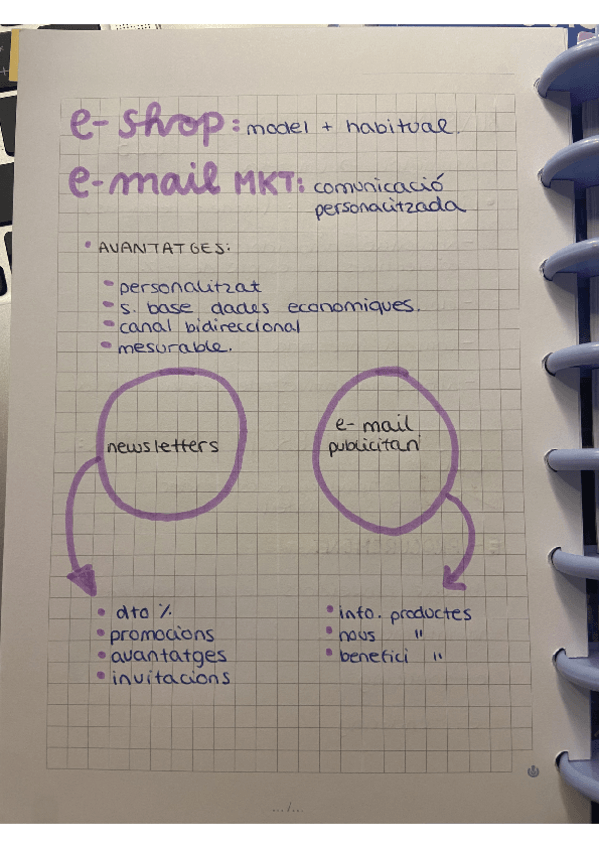 e-shop: model + habitual.
e-mail MKT: comunicació
personalitzada
• AVANTATGES:
• personalitzat
• s. base dades economiques.
• canal bidireccional
• mesurable.
newsletters
e-mail
publicitari
• dto %
• promocions
• avantatges
• invitacions
• info. productes
• nous "
• benefici "
.../...